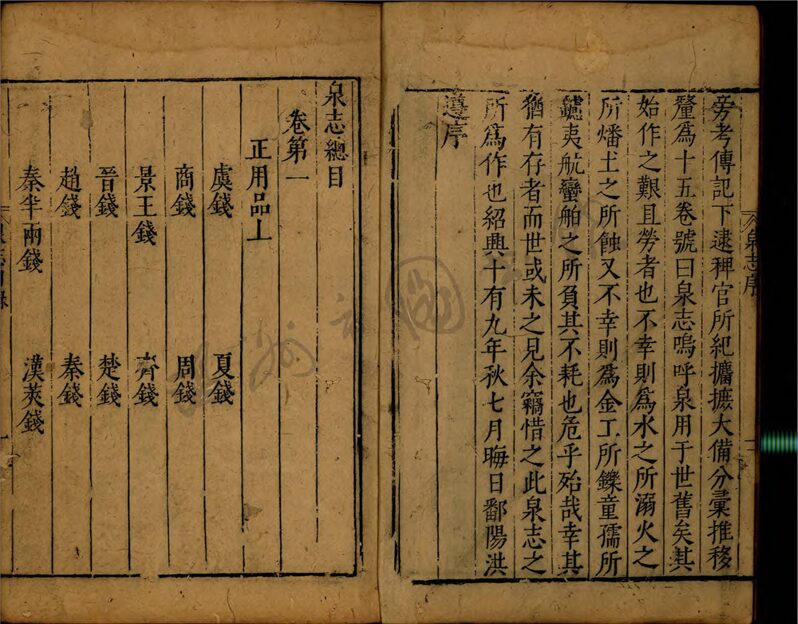 旁考傳記下逮稗官所紀攟摭大備分彙推移
釐為十五卷號曰泉志嗚呼泉用于世舊矣其
始作之艱且勞者也不幸則為水之所溺火之
所燔土之所蝕又不幸則為金工所鑠童孺所
鑢夷航蠻舶之所負其不耗也危乎殆哉幸其
猶有存者而世或未之見余竊惜之此泉志之
所為作也紹興十有九年秋七月晦日鄱陽洪
遵序
泉志序
泉志總目
卷第一
正用品上
虞錢 夏錢
商錢 周錢
景王錢 齊錢
晉錢 楚錢
趙錢 秦錢
秦半兩錢 漢莢錢